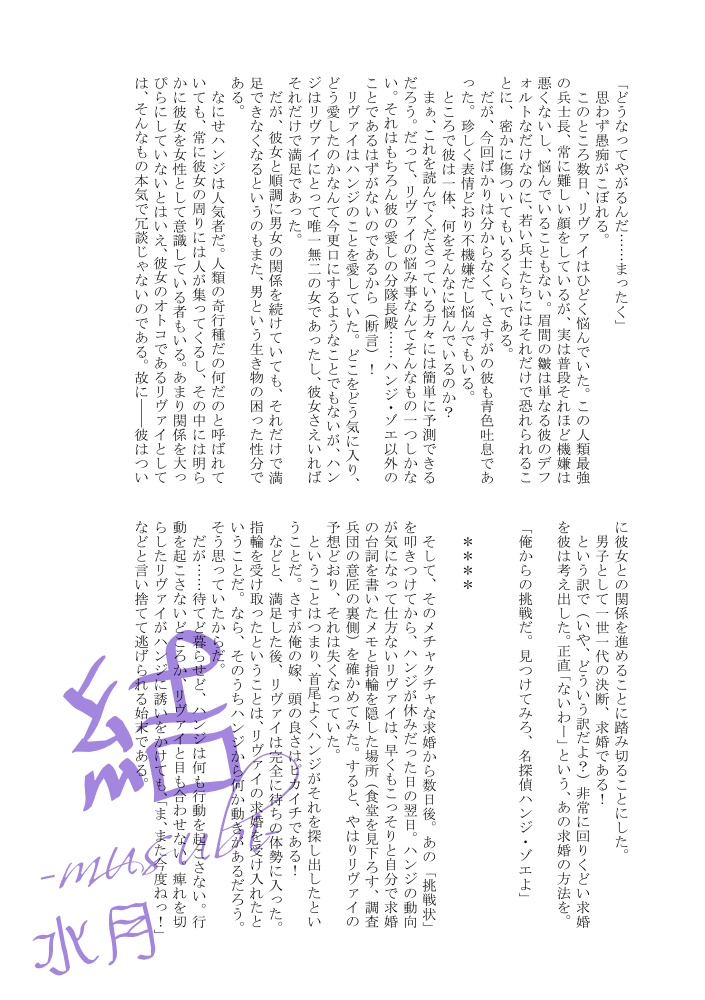 「どうなってやがるんだ……まったく」
思わず愚痴がこぼれる。
このところ数日、リヴァイはひどく悩んでいた。この人類最強
の兵士長、常に難しい顔をしているが、実は普段それほど機嫌は
悪くないし、悩んでいることもない。眉間の皺は単なる彼のデフ
ォルトなだけなのに、若い兵士たちにはそれだけで恐れられるこ
とに、密かに傷ついてもいるくらいである。
だが、今回ばかりは分からなくて、さすがの彼も青色吐息であ
った。珍しく表情どおり不機嫌だし悩んでもいる。
ところで彼は一体、何をそんなに悩んでいるのか？
まぁ、これを読んでくださっている方々には簡単に予測できる
だろう。だって、リヴァイの悩み事なんてそんなもの一つしかな
い。それはもちろん彼の愛しの分隊長殿……ハンジ・ゾエ以外の
ことであるはずがないのであるから（断言）！
リヴァイはハンジのことを愛していた。どこをどう気に入り、
どう愛したのかなんて今更口にするようなことでもないが、ハン
ジはリヴァイにとって唯一無二の女であったし、彼女さえいれば
それだけで満足であった。
だが、彼女と順調に男女の関係を続けていても、それだけで満
足できなくなるというのもまた、男という生き物の困った性分で
ある。
なにせハンジは人気者だ。人類の奇行種だの何だのと呼ばれて
いても、常に彼女の周りには人が集ってくるし、その中には明ら
かに彼女を女性として意識している者もいる。あまり関係を大っ
ぴらにしていないとはいえ、彼女のオトコであるリヴァイとして
は、そんなもの本気で冗談じゃないのである。故に――彼はつい
に彼女との関係を進めることに踏み切ることにした。
男子として一世一代の決断、求婚である！
という訳で（いや、どういう訳だよ？）非常に回りくどい求婚
を彼は考え出した。正直「ないわー」という、あの求婚の方法を。
「俺からの挑戦だ。見つけてみろ、名探偵ハンジ・ゾエよ」
＊＊＊＊
そして、そのメチャクチャな求婚から数日後。あの「挑戦状」
を叩きつけてから、ハンジが休みだった日の翌日。ハンジの動向
が気になって仕方ないリヴァイは、早くもこっそりと自分で求婚
の台詞を書いたメモと指輪を隠した場所（食堂を見下ろす、調査
兵団の意匠の裏側）を確かめてみた。すると、やはりリヴァイの
予想どおり、それは失くなっていた。
ということはつまり、首尾よくハンジがそれを探し出したとい
うことだ。さすが俺の嫁、頭の良さはピカイチである！
などと、満足した後、リヴァイは完全に待ちの体勢に入った。
指輪を受け取ったということは、リヴァイの求婚を受け入れたと
いうことだ。なら、そのうちハンジから何か動きがあるだろう。
そう思っていたからだ。
だが……待てど暮らせど、ハンジは何も行動を起こさない。行
動を起こさないどころか、リヴァイと目も合わせない。痺れを切
らしたリヴァイがハンジに誘いをかけても、「ま、また今度ねっ！」
などと言い捨てて逃げられる始末である。
結
-musubi-
水月